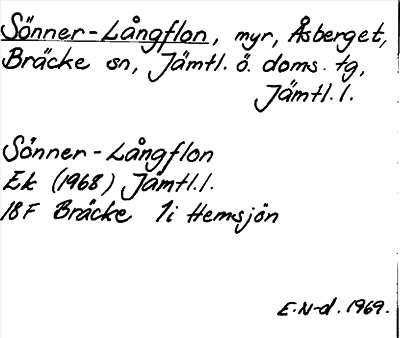 Sönner-Långflon, myr, Åsberget,
Bräcke sn, Jämtl. ö. doms. tg,
Jämtl. l.
Sönner-Långflon
Ek (1968) Jämtl. l.
18F Bräcke 1i Hemsjön
E.N-d. 1969.